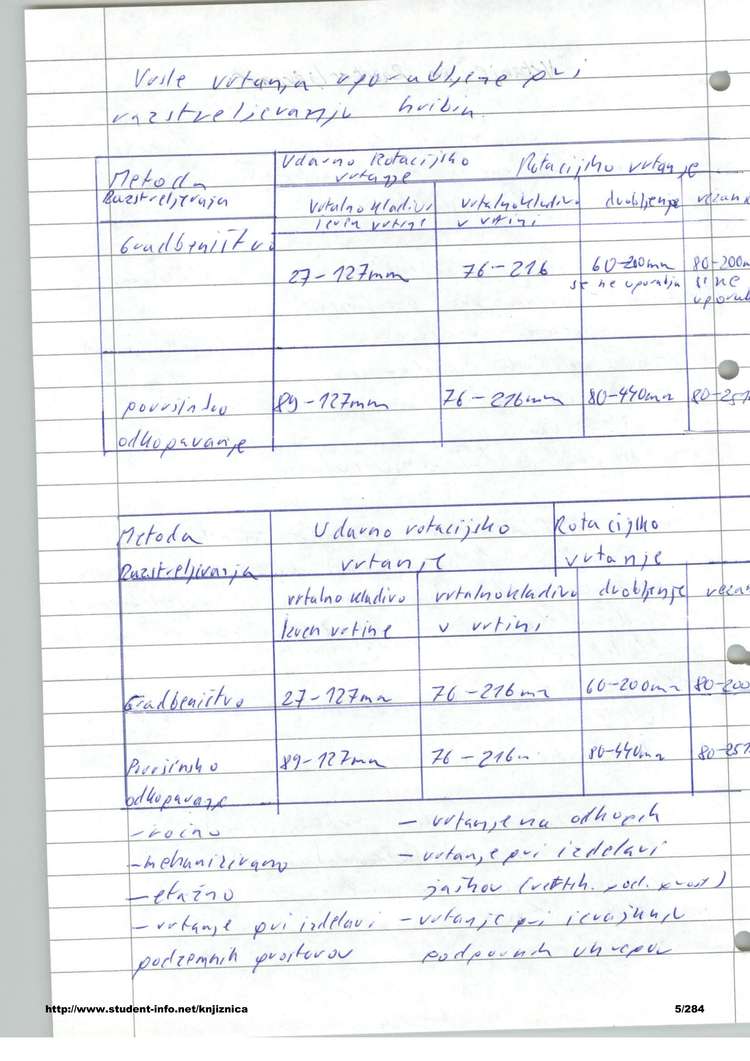 Vrste vrtanja uporabljene pri
razstreljevanju hribin
Metoda
Razstreljevanja
Udarno Rotacijsko
vrtanje
Rotacijsko vrtanje
vrtalno kladivo
izven vrtine
vrtalno kladivo
v vrtini
dvobljenje
rezan
Gradbeništvo
27-127mm
76-216
60-200mm
se ne uporablja
80-200m
se ne
uporab
površinsko
odkopavanje
89-127mm
76-216mm
80-440mm
80-251
Metoda
Razstreljivanja
Udarno rotacijsko
vrtanje
Rotacijsko
vrtanje
vrtalno kladivo
izven vrtine
vrtalno kladivo
v vrtini
dvobljenje
rezan
Gradbeništvo
27-127mm
76-216mm
60-200mm
80-200
Površinsko
odkopavanje
89-127mm
76-216m
80-440mm
80-251
- ročno
- mehanizirano
- etažno
- vrtanje pri izdelavi
podzemnih prostorov
- vrtanje na odkopih
- vrtanje pri izdelavi
jaškov (
- vrtanje pri
podpornih ukrepov
http://www.student-info.net/knjiznica
5/284